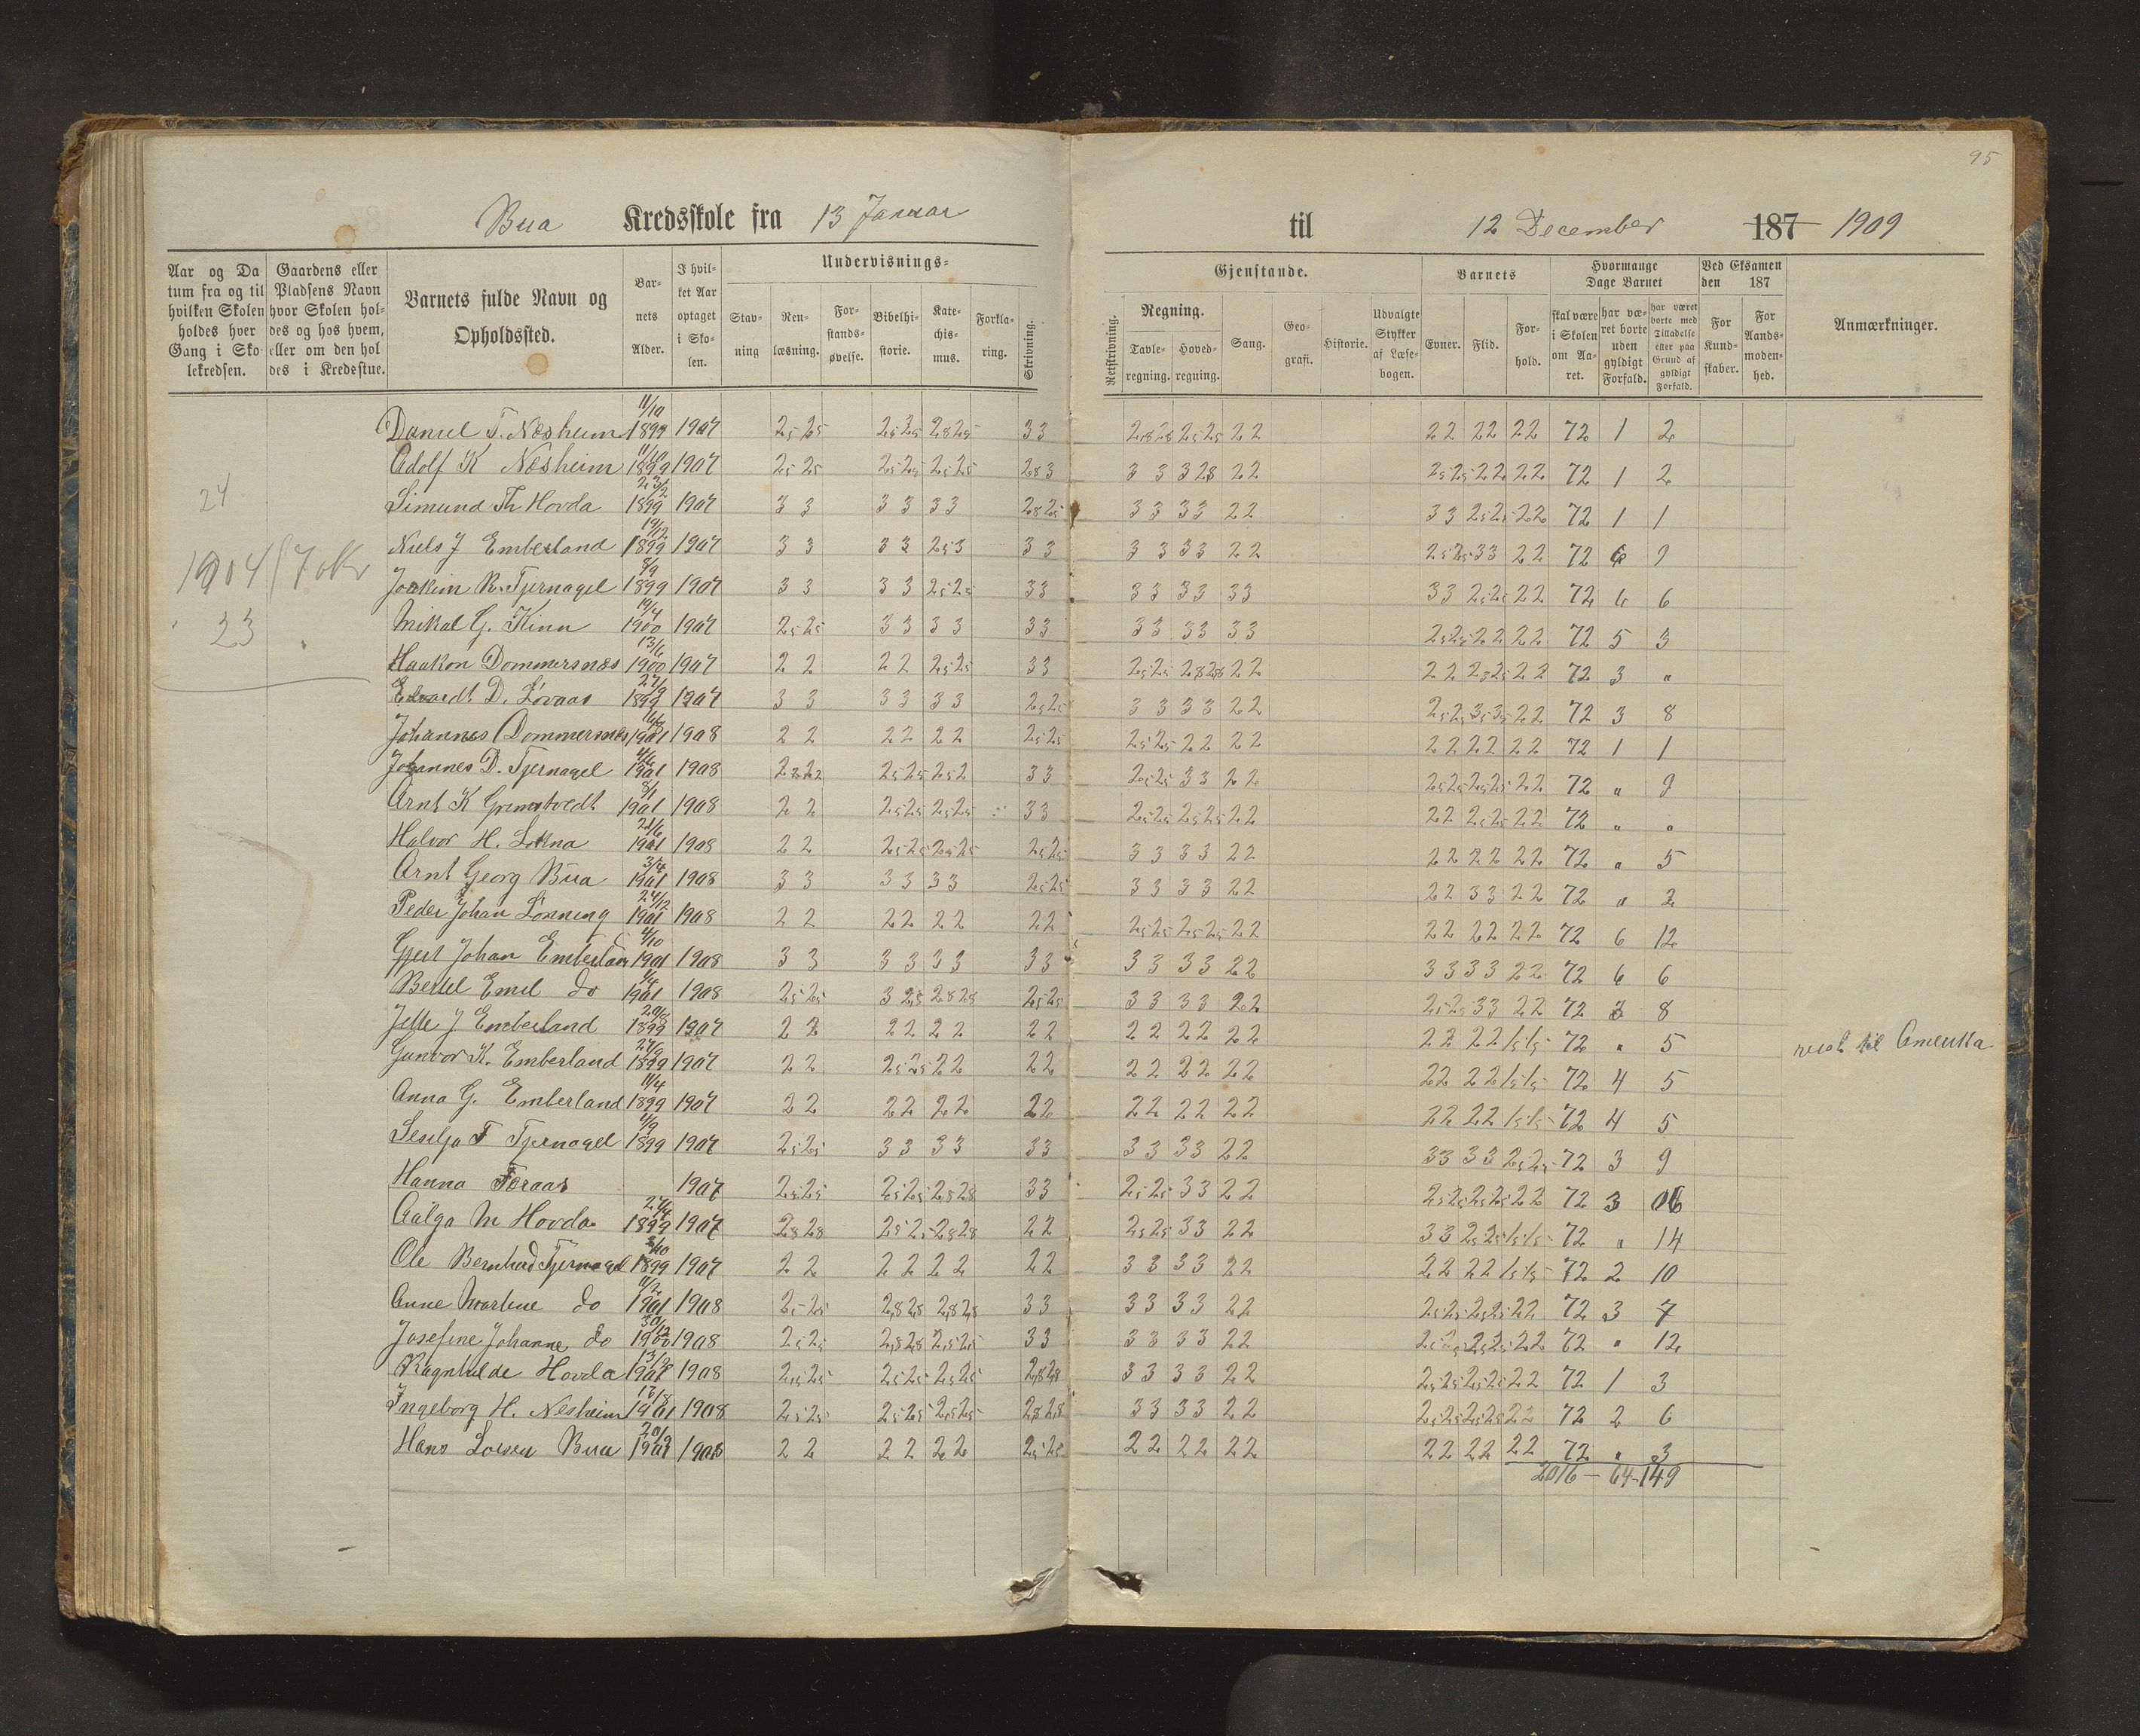 95
Bua Kredsskole fra 13 Januar til 12 December 187 1909
Aar og Datum fra og til hvilken Skolen holdes hver Gang i Skolekredsen.
Gaardens eller Pladsens Navn hvor Skolen holdes og hos hvem, eller om den holdes i Kredsstue.
Barnets fulde Navn og Opholdssted.
Barnets Alder.
I hvilket Aar optaget i Skolen.
Undervisnings- Gjenstande.
Stavning
Renlæsning.
Forstandsøvelse.
Bibelhistorie.
Katechismus.
Forklaring.
Skrivning.
Retskrivning.
Regning.
Tavleregning.
Hovedregning.
Sang.
Geografi.
Historie.
Udvalgte Stykker af Læsebogen.
Barnets
Evner.
Flid.
Forhold.
Hvormange Dage Barnet
skal være i Skolen om Aaret.
har været borte uden gyldigt Forfald.
har været borte med Tilladelse eller paa Grund af gyldigt Forfald.
Ved Eksamen den 187
For Kundskaber.
For Aandsmodenhed.
Anmærkninger.
24
1904
23
Daniel T. Næsheim 11/10 1899 1907 2,5 2,5 2,5 2,5 2,8 2,5 3 3 2,8 2,8 2,5 2,5 2 2 2 2 2 2 2 2 72 1 2
Adolf K Næsheim 1899 1907 2,5 2,5 2,5 2,5 2,5 2,5 2,8 3 3 3 3 2,8 2 2 2,5 2,5 2 2 2 2 72 1 2
Simund Th Hovda 23/2 1899 1907 3 3 3 3 3 3 2,8 2,5 3 3 3 3 2 2 3 3 2,5 2,5 2 2 72 1 1
Niels J Emberland 19/12 1899 1907 3 3 3 3 2,5 3 3 3 3 3 3 3 2 2 2,5 2,5 3 3 2 2 72 6 9
Joakim R. Tjernagel 8/9 1899 1907 3 3 3 3 2,5 2,5 3 3 3 3 3 3 3 3 3 3 2,5 2,5 2 2 72 6 6
Mikal G. Kinn 19/4 1900 1907 2,5 2,5 3 3 3 3 3 3 3 3 3 3 3 3 2,5 2,5 2 2 2 2 72 5 3
Haakon Dommersnæs 13/6 1900 1907 2 2 2 2 2,5 2,5 3 3 2,5 2,5 2,8 2,8 2 2 2 2 2,5 2,5 2 2 72 3 "
D. Lovaas 27/9 1899 1907 3 3 3 3 3 3 2,5 2,5 3 3 3 3 2 2 2,5 2,5 3,5 3,5 2 2 72 3 8
Johannes Dommersnes 1901 1908 2 2 2 2 2 2 2,5 2,5 2,5 2,5 2 2 2 2 2 2 2 2 2 2 72 1 1
Johannes D. Tjernagel 4/6 1901 1908 2,5 2,5 2,5 2 3 3 2,5 2,5 3 3 2 2 2,5 2,5 2,5 2,5 2 2 72 " 9
Arnt K Grimstvedt 8/1 1901 1908 2 2 2,5 2,5 2,5 2,5 3 3 2,5 2,5 2,5 2,5 2 2 2 2 2,5 2,5 2 2 72 " "
Halvor H. 21/6 1901 1908 2 2 2,5 2,5 2,5 2,5 2,5 2,5 3 3 3 3 2 2 2 2 2 2 2 2 72 " 5
Arnt Georg Bua 3/4 1901 1908 3 3 3 3 3 3 2,5 2,5 3 3 3 3 2 2 2 2 3 3 2 2 72 " 2
Peder Johan Lønning 24/12 1901 1908 2 2 2 2 2 2 2 2 2,5 2,5 2,5 2,5 2 2 2 2 2 2 2 2 72 6 12
Johan Emberland 4/10 1901 1908 3 3 3 3 3 3 3 3 3 3 3 3 2 2 3 3 3 3 2 2 72 6 6
Bertel Emil do 1901 1908 2,5 2,5 3 2,5 2,8 2,8 2,5 2,5 3 3 3 3 2 2 2,5 2,5 3 3 2 2 72 3 8
Jelle J Emberland 1899 1907 2 2 2 2 2 2 2 2 2 2 2 2 2 2 2 2 2 2 1,5 1,5 72 " 5 reist til Amerika
Gunvor K. Emberland 27/9 1899 1907 2 2 2,5 2,5 2 2 2 2 2 2 2 2 2 2 2 2 2 2 1,5 1,5 72 4 5
Anna G. Emberland 11/4 1899 1907 2 2 2 2 2 2 2 2 2 2 2 2 2 2 2 2 2 2 1,5 1,5 72 4 5
Seselja T Tjernagel 1899 1907 2,5 2,5 3 3 3 3 3 3 3 3 3 3 2 2 3 3 3 3 2,5 2,5 72 3 9
Hanna Føraas 1907 2,5 2,5 2,5 2,5 2,8 2,8 3 3 2,5 2,5 3 3 2 2 2,5 2,5 2,5 2,5 2 2 72 3
M Hovda 27/4 1899 1907 2,8 2,8 2,5 2,5 2,8 2,8 2 2 2,5 2,5 3 3 2 2 3 3 2,5 2,5 1,5 1,5 72 " 14
Ole Bernhard Tjernagel 1899 1907 2 2 2 2 2 2 2 2 3 3 3 3 2 2 2 2 2 2 1,5 1,5 72 2 10
Anne Martine do 11/2 1901 1908 2,5 2,5 2,8 2,8 2,8 2,8 3 3 3 3 3 3 2 2 2,5 2,5 2,5 2,5 2 2 72 3 7
Josefine Johanne do 30/12 1900 1908 2,5 2,5 2,8 2,8 2,5 2,5 3 3 3 3 3 3 2 2 2,5 2,5 2,5 2,5 2 2 72 " 12
Ragnhilde Hovda 1908 2,5 2,5 2,5 2,5 2,5 2,5 2,8 2,8 3 3 3 3 2 2 2,5 2,5 2,5 2,5 2 2 72 1 3
Ingeborg H. Nesheim 13/8 1901 1908 2,5 2,5 2,5 2,5 2,5 2,5 2,8 2,8 3 3 3 3 2 2 2,5 2,5 2,5 2,5 2 2 72 2 6
Hans Bua 20/9 1908 2 2 2 2 2 2 2,5 2,5 2 2 2 2 2 2 2 2 2 2 2 2 72 " 3
2016 - 64 - 149